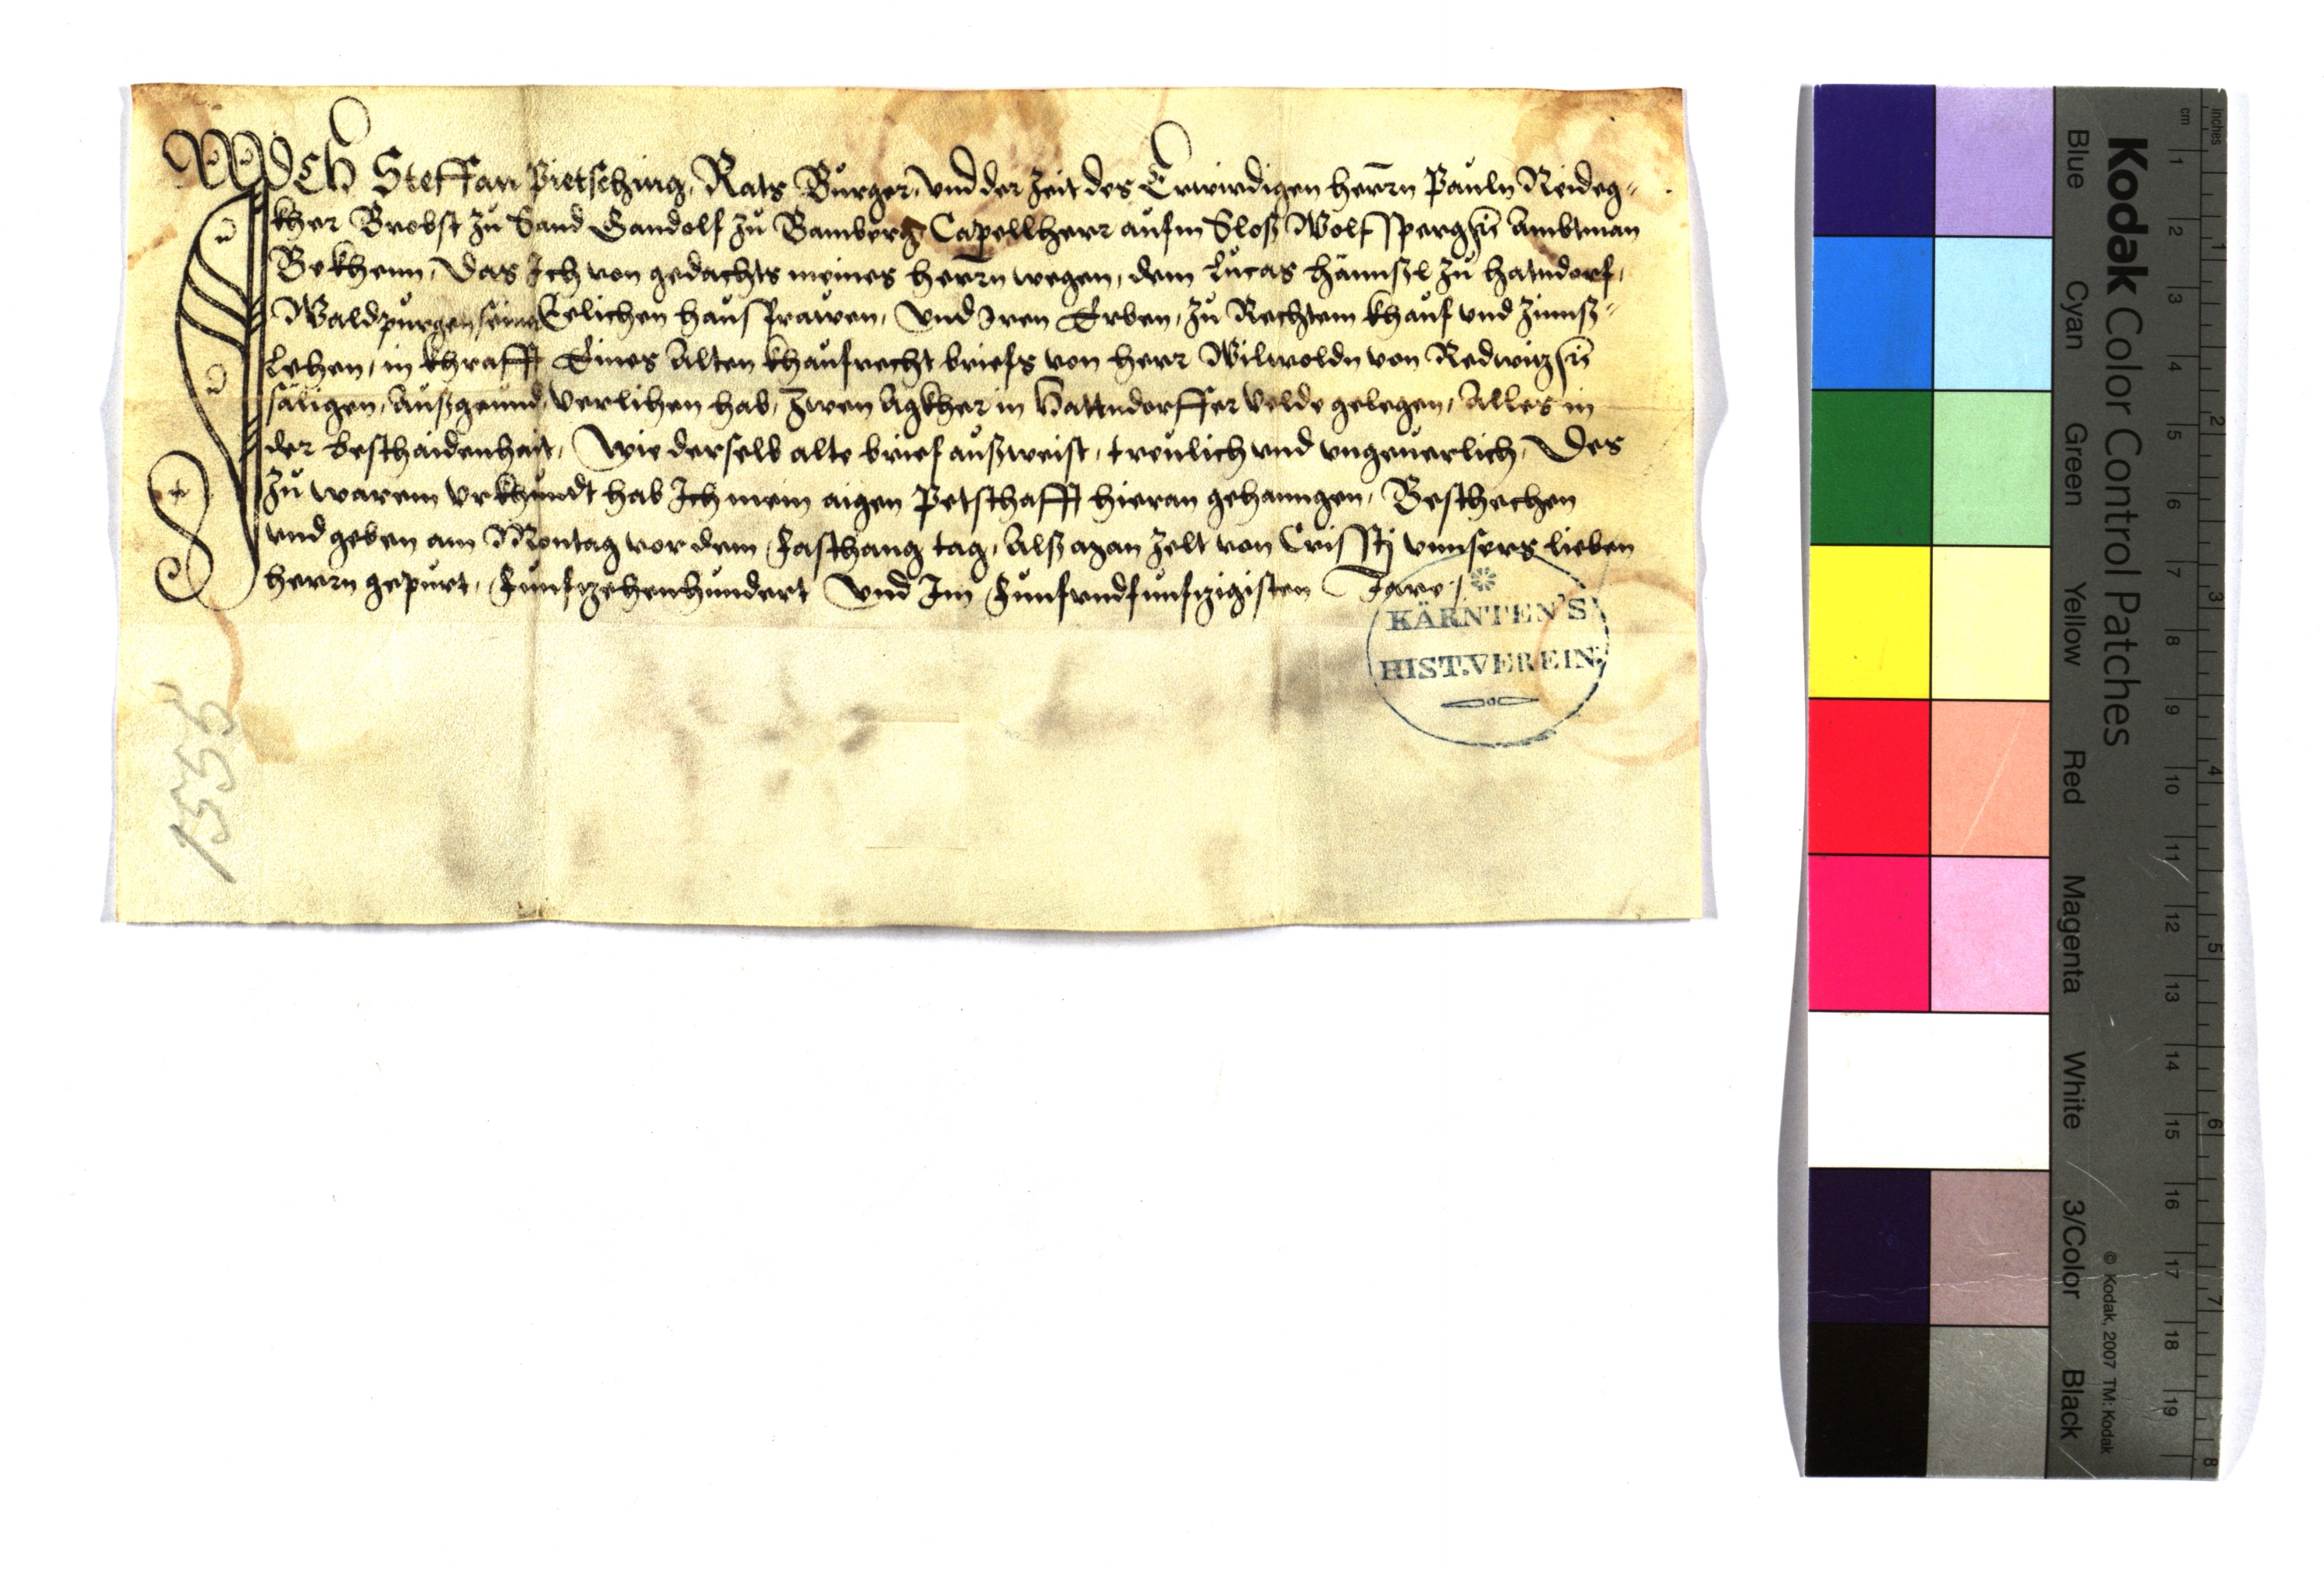 Ich Steffan Pietschnig, Rats Burger, vnd der Zeit des Erwirdigen herrn Pauln Neideg-
kher Brobst zu Sand Gandolf zu Bamberg Capellherr aufm Sloß Wolfsperg Ambtman
Bekhenn, Das Ich von gedachts meines herrn wegen, dem Lucas hännsl zu hatndorf,
Waldpurgen seiner Eelichen hausfrawen, Vnd Iren Erben, zu Rechtem khauf vnd Zinnß-
Lehen, in khrafft Eines Alten khaufrecht briefs von herr Wilwoldn von Redwitz
säligen, Außgeund, Verlihen hab, Zwen Agkher in Hattndorffer Velde gelegen, Alles in
der beschaidenhait, Wie derselb alte brief außweist, treulich vnd vngeuerlich, Des
Zu warem Vrkhundt hab Ich mein aigen Petschafft hieran gehanngen, Beschechen
vnd geben am Montag vor dem Faschang tag, Alß man Zelt von Cristj vnnsers lieben
herrn gepurt, Funfzehenhundert Vnd Im Funfvndfunfzigisten Jare
KÄRNTEN'S
HIST.VEREIN.
1555
Kodak Color Control Patches
Blue Cyan Green Yellow Red Magenta White 3/Color Black
© Kodak, 2007 TM: Kodak
inches 1 2 3 4 5 6 7 8
cm 1 2 3 4 5 6 7 8 9 10 11 12 13 14 15 16 17 18 19